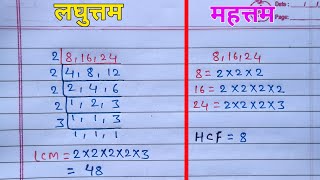 लघुत्तम
2 | 8, 16, 24
2 | 4, 8, 12
2 | 2, 4, 6
2 | 1, 2, 3
3 | 1, 1, 3
1, 1, 1
LCM = 2×2×2×2×3
= 48
महत्तम
Date : / /
Page:
8, 16, 24
8 = 2×2×2
16 = 2×2×2×2
24 = 2×2×2×3
HCF = 8